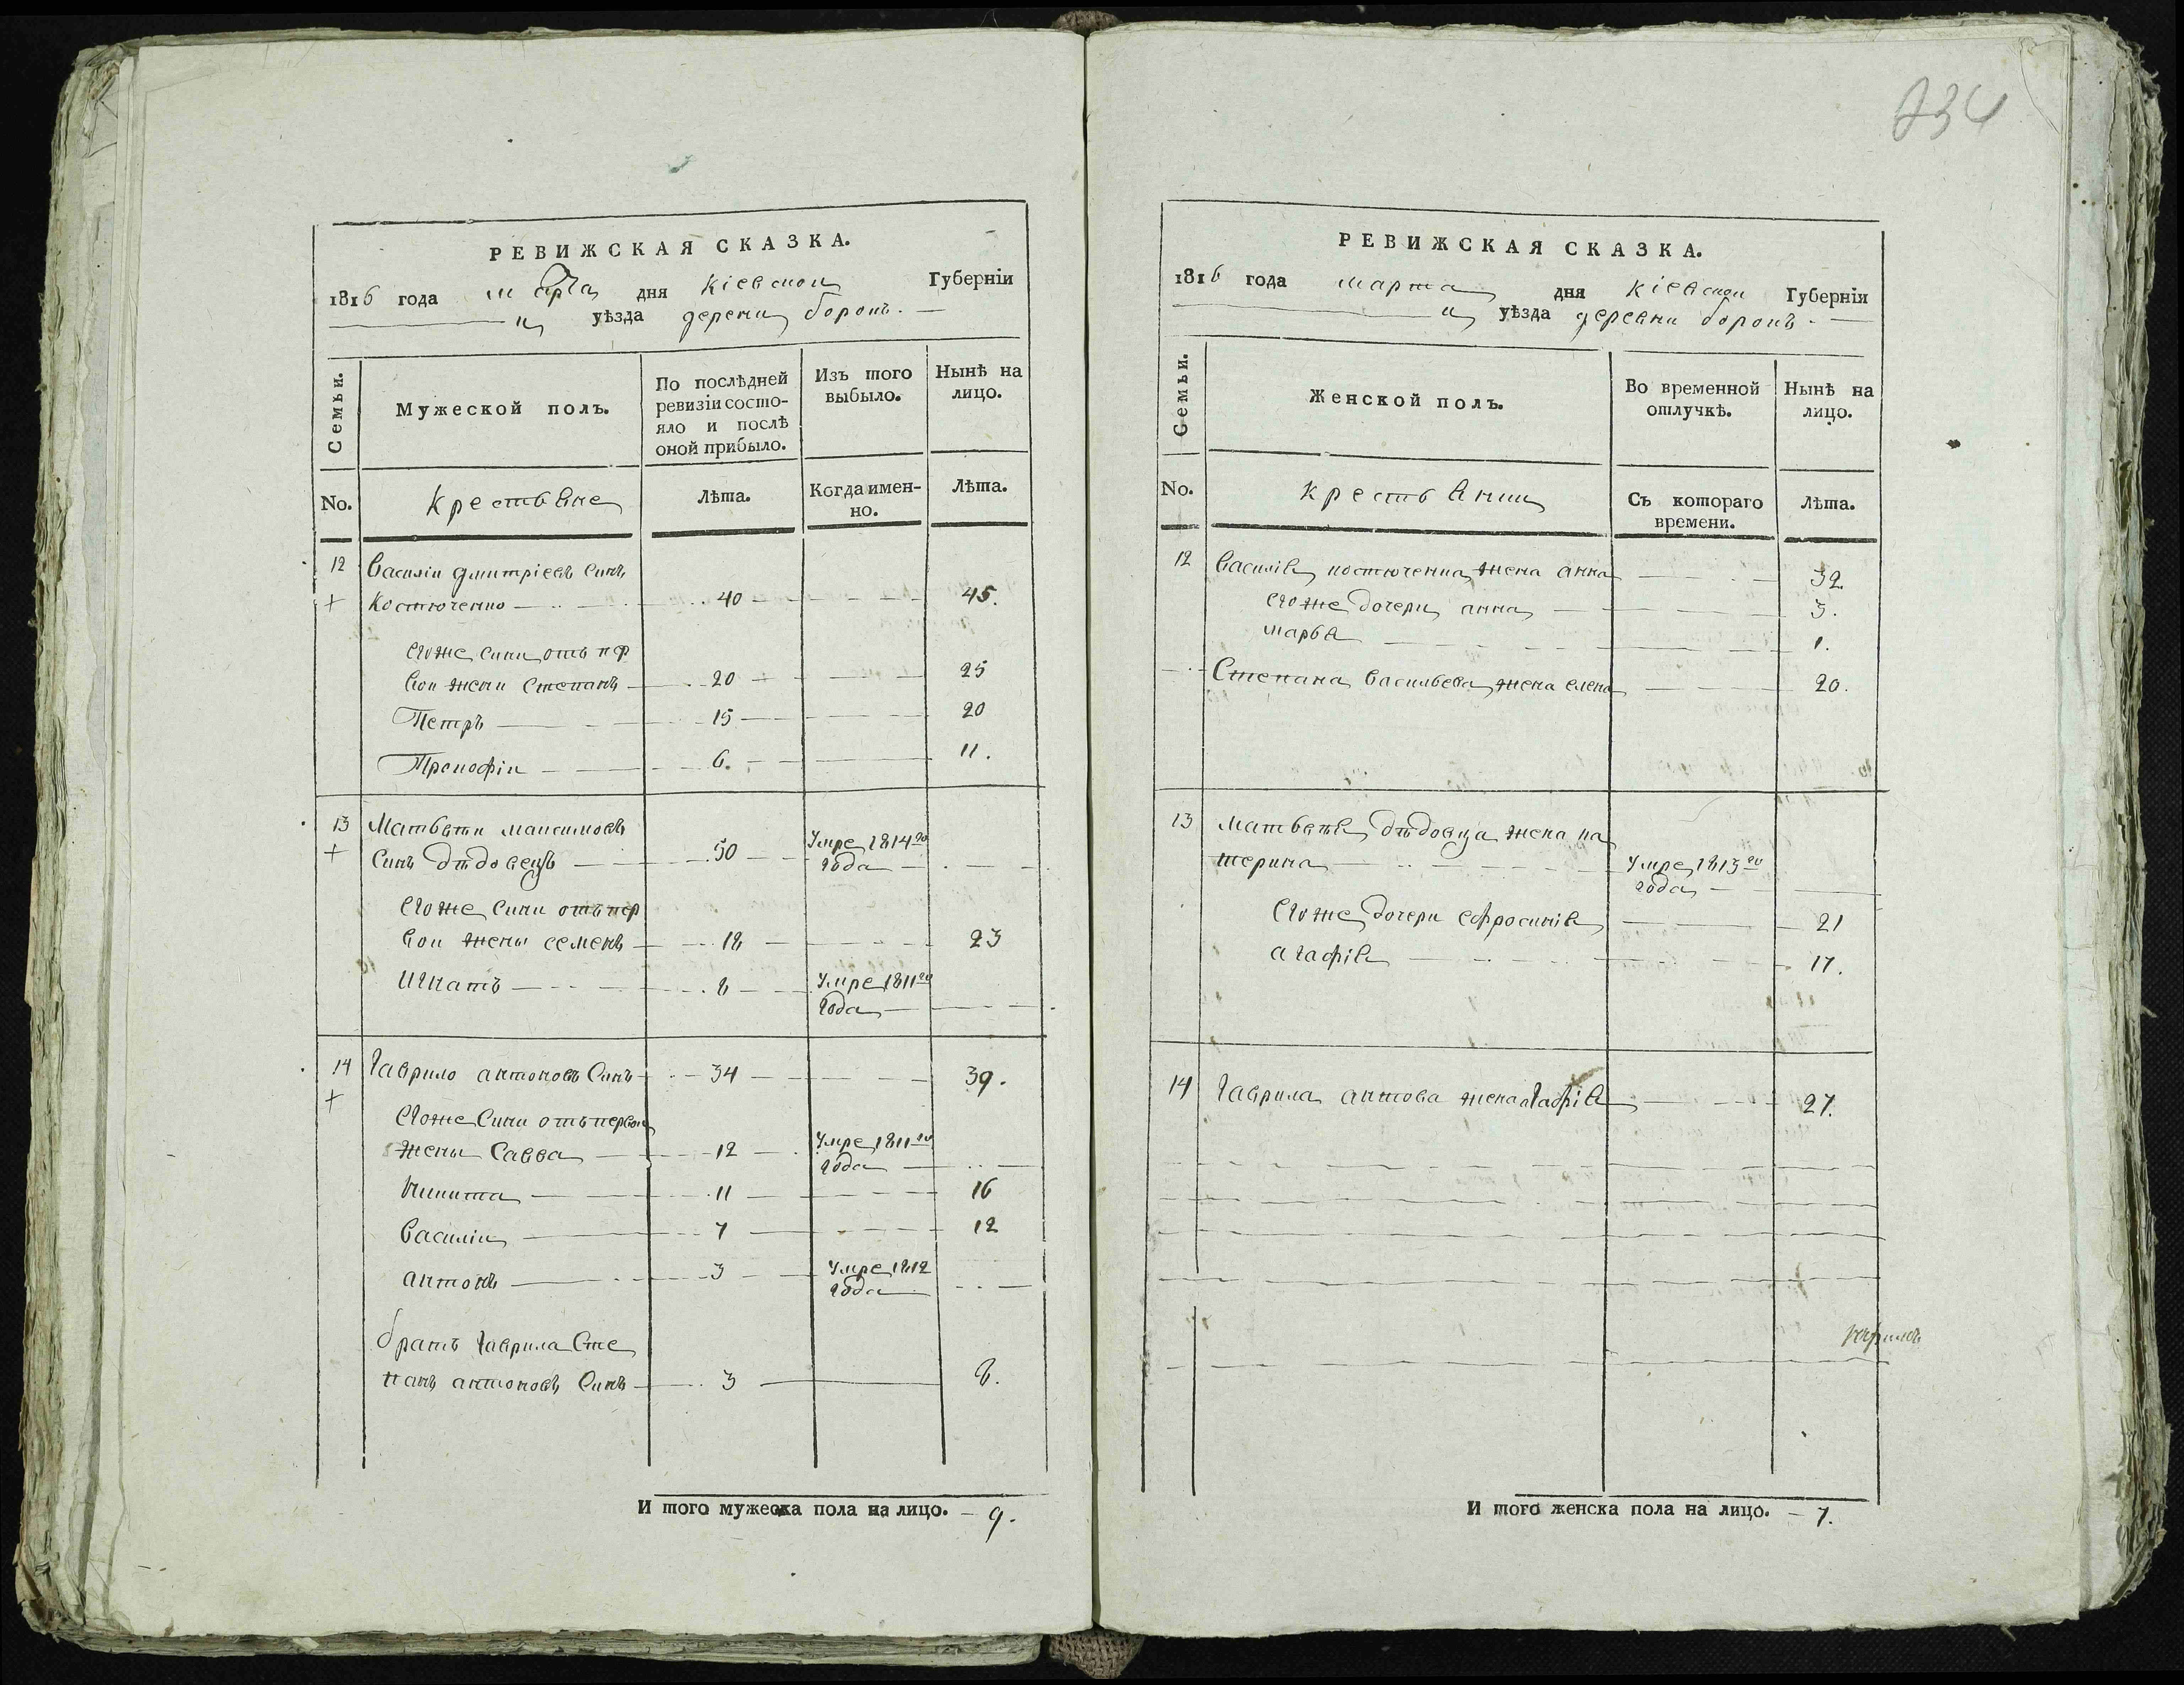 РЕВИЖСКАЯ СКАЗКА.
1816 года марта дня Кіевской Губерніи
уѣзда деревни боровъ.
Семьи.
Мужеской полъ.
По послѣдней ревизіи состо-
яло и послѣ оной прибыло.
Изъ того выбыло.
Нынѣ на лицо.
No. Крестьяне Лѣта. Когда имен-но. Лѣта.
12 Василіи дмитріевъ синъ
Костюченко 40 45.
Егоже сини отъ пер
вои жени Степанъ 20 25
Петръ 15 20
Прокофіи 6. 11.
13 Матвѣи максимовъ Умре 1814го
синъ дѣдовецъ 50 года
Егоже сини отъ пер
вои жены семенъ 18 23
Игнатъ 8 Умре 1811го
года
14 Гаврило антоновъ синъ 34 39.
Егоже сини отъ первои
жены Савва 12 Умре 1811го
года
Никита 11 16
Василіи 7 12
антонъ 3 Умре 1812
года
братъ гаврила Сте
панъ антоновъ синъ 3 8.
И того мужеска пола на лицо. 9.
234
РЕВИЖСКАЯ СКАЗКА.
1816 года марта дня Кіевской Губернія
уѣзда деревни боровъ.
Семьи.
Женской полъ.
Во временной отлучкѣ.
Нынѣ на лицо.
No. Крестьянки Съ котораго времени. Лѣта.
12 Василія костюченка жена анна 32
Егоже дочери анна 3.
марья 1.
Степана васильева жена елена 20.
13 матвѣя дѣдовца жена ка
терина Умре 1813го
года
Егоже дочери ефросинія 21
агафія 17.
14 гаврила антова жена агафія 27.
И того женска пола на лицо. 7.